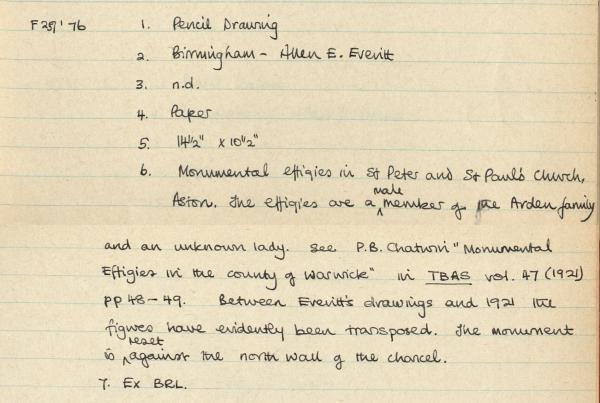 F 259' 76 1. Pencil Drawing
2. Birmingham - Allen E. Everitt
3. n.d.
4. Paper
5. 14½" x 10½"
6. Monumental effigies in St Peter and St Paul's Church,
Aston. The effigies are a male member of the Arden family
and an unknown lady. See P.B. Chatwin "Monumental
Effigies in the county of Warwick" in TBAS vol. 47 (1921)
pp 48-49. Between Everitt's drawings and 1921 the
figures have evidently been transposed. The monument
is reset against the north wall of the chancel.
7. Ex BRL.